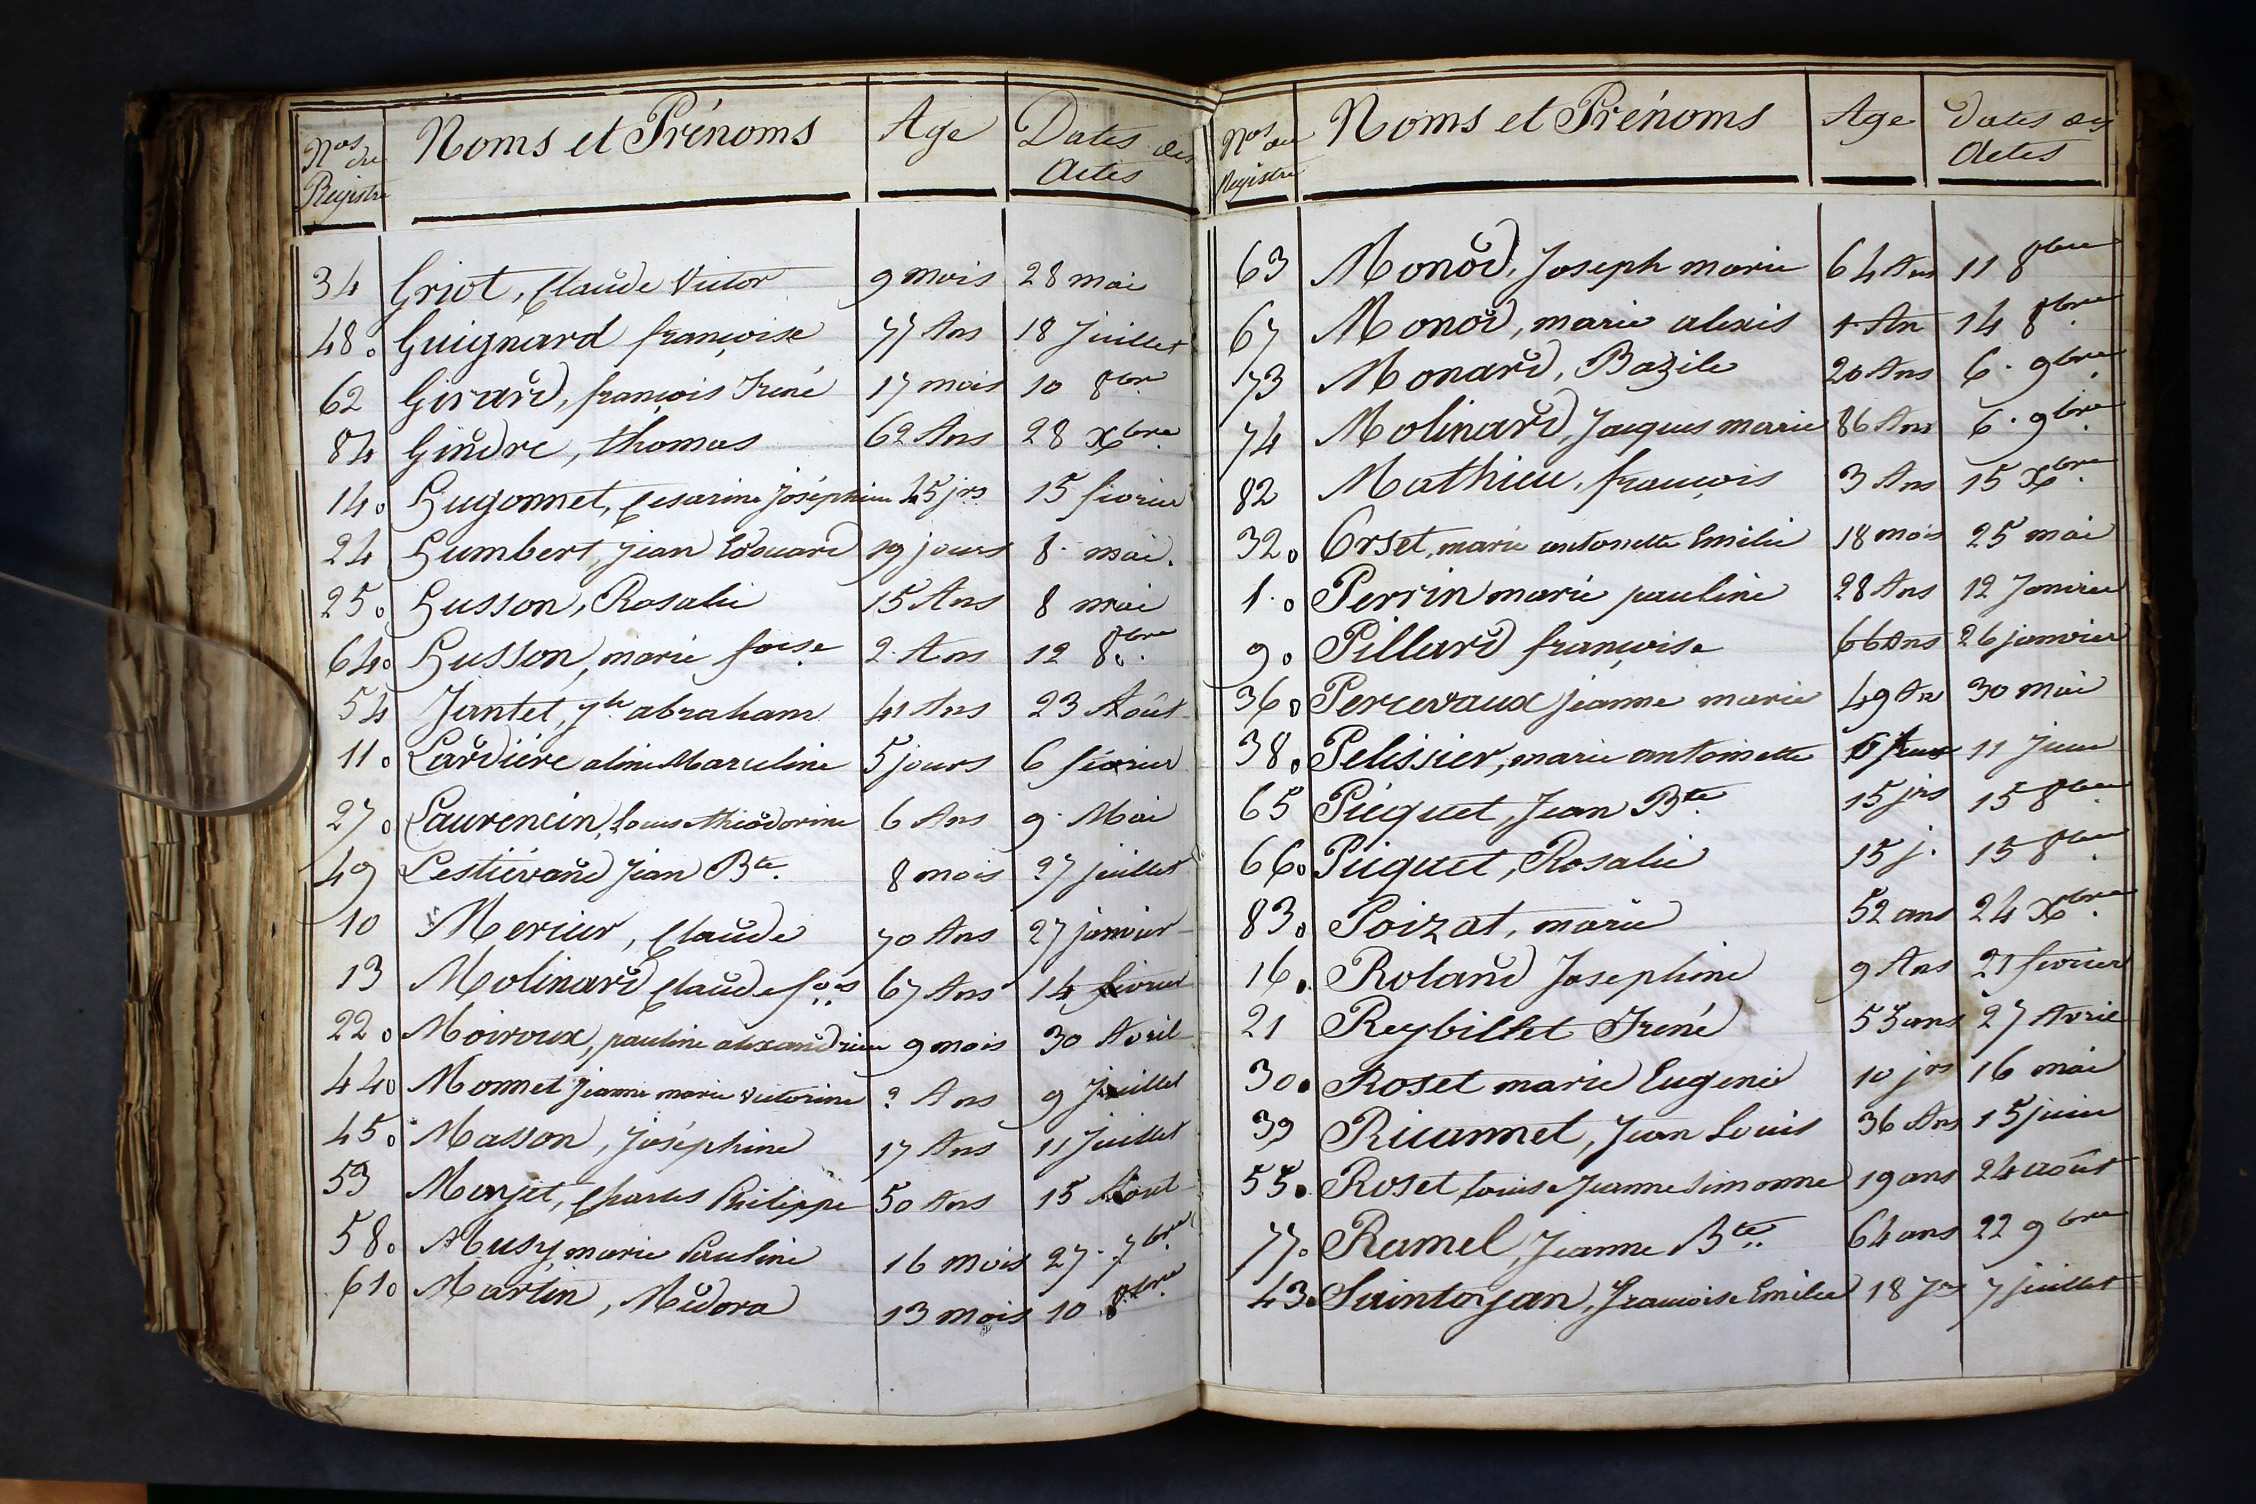 Nos du Registre Noms et Prénoms Age Dates des Actes
34 Griot, Claude Victor 9 mois 28 mai
48. Guignard françoise 77 Ans 18 Juillet
62 Girard, françois Irené 17 mois 10 8bre
84 Gindre, thomas 62 Ans 28 Xbre
14. Hugonnet, Cesarine Joséphine 25 jrs 15 fevrier
24 Humbert, jean Edouard 19 jours 8. mai.
25. Husson, Rosalie 15 Ans 8 mai
64. Husson, marie foise 2 Ans 12 8bre
54 Jantet, jh abraham 41 Ans 23 Août
11. Lardière aline Marceline 5 jours 6 février
27. Laurencin, Louise théodorine 6 Ans 9. Mai
49 Lestiévand Jean Bte. 8 mois 27 juillet
10 Mercier, Claude 70 Ans 27 janvier
13 Molinard Claude fois 67 Ans 14 février
22. Moiroux, pauline alexandrine 9 mois 30 Avril
44. Monnet Jeanne marie victorine 2 Ans 9 Juillet
45. Masson, Joséphine 17 Ans 11 Juillet
53 Monjet, Charles Philippe 50 Ans 15 Aout
58. Musy, marie Pauline 16 mois 27. 7bre
61. Martin, Médora 13 mois 10 8bre
Nos du Registre Noms et Prénoms Age Dates des Actes
63 Monod, Joseph marie 64 Ans 11 8bre
67 Monod, marie alexis 1 An 14 8bre
73 Monard, Bazile 20 Ans 6. 9bre
74 Molinard, Jacques marie 86 Ans 6. 9bre
82 Mathieu, françois 3 Ans 15 Xbre
32. Orset, marie antonette Emilie 18 mois 25 mai
1. Perrin marie pauline 28 Ans 12 Janvier
9. Pillard françoise 66 Ans 26 janvier
36. Percevaux jeanne marie 49 An 30 Mai
38. Pelissier, marie antoinette 11 Juin
65 Picquet, Jean Bte 15 jrs 15 8bre
66. Picquet, Rosalie 15 j. 15 8bre
83. Poizat, marie 52 ans 24 Xbre
16. Roland Josephine 9 Ans 21 fevrier
21 Reybillet Irené 53 ans 27 Avril
30. Roset marie Eugenie 10 jrs 16 mai
39 Ricannet, Jean Louis 36 Ans 15 juin
55. Roset, Louise Jeanne Simonne 19 ans 24 août
77. Ramel, Jeanne Bte 64 ans 22 9bre
43. Saintoyan, Francoise Emilie 18 Jrs 7 juillet